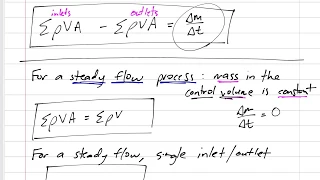 inlets outlets
ΣρVA - ΣρVA = Δm/Δt
For a steady flow process : mass in the
control volume is constant
ΣρVA = ΣρV Δm/Δt = 0
For a steady flow, single inlet/outlet